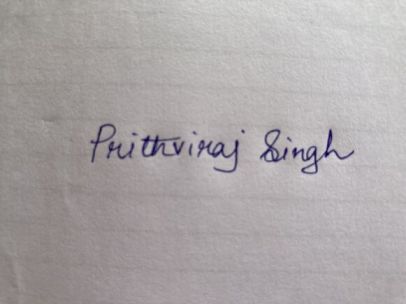 Prithviraj Singh